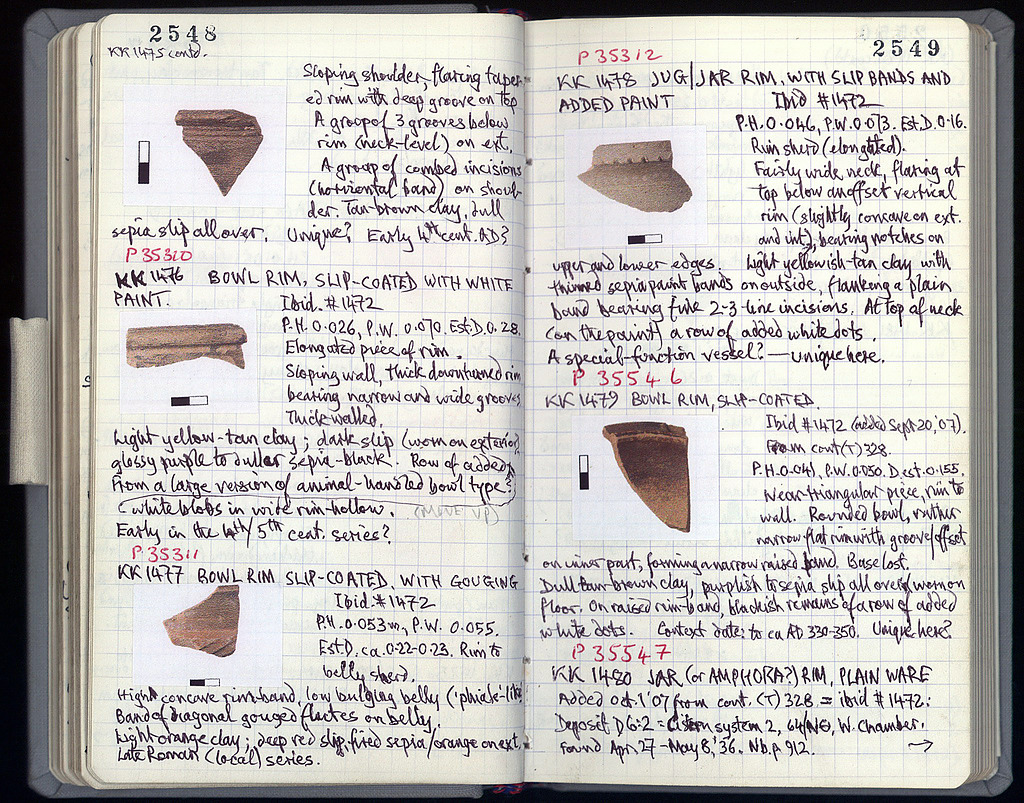 2548
KK 1475 contd.
Sloping shoulder, flaring taper-
ed rim with deep groove on top
A group of 3 grooves below
rim (neck-level) on ext.
A group of combed incisions
(horizontal band) on shoul-
der. Tan-brown clay, dull
sepia slip all over. Unique? Early 4th cent. AD?
P 35310
KK 1476 BOWL RIM, SLIP-COATED WITH WHITE
PAINT. Ibid. #1472
P.H. 0.026, P.W. 0.070. Est.D. 0.28.
Elongated piece of rim.
Sloping wall, thick downturned rim
bearing narrow and wide grooves
Thick-walled.
Light yellow-tan clay; dark slip (worn on exterior)
glossy purple to duller sepia-black. Row of added
From a large version of animal-handled bowl type?
white blobs in wide rim-hollow. (MOVE UP)
Early in the 4th/5th cent. series?
P 35311
KK 1477 BOWL RIM SLIP-COATED, WITH GOUGING
Ibid. #1472
P.H. 0.053m, P.W. 0.055.
Est.D. ca. 0.22-0.23. Rim to
belly sherd.
High concave rim-band, low bulging belly ('phiale-like
Band of diagonal gouged flutes on belly.
Light orange clay; deep red slip, fired sepia/orange on ext.
Late Roman (local) series.
2549
P 35312
KK 1478 JUG/JAR RIM, WITH SLIP BANDS AND
ADDED PAINT Ibid #1472
P.H. 0.046, P.W. 0.073. Est.D. 0.16.
Rim sherd (elongated).
Fairly wide neck, flaring at
top below an offset vertical
rim (slightly concave on ext.
and int), bearing notches on
upper and lower edges. Light yellowish-tan clay with
thinned sepia paint bands on outside, flanking a plain
band bearing fine 2-3-line incisions. At top of neck
(on the paint) a row of added white dots.
A special-function vessel? — unique here.
P 35546
KK 1479 BOWL RIM, SLIP-COATED.
Ibid #1472 (added Sept. 20, '07).
From cont (T) 328.
P.H. 0.041, P.W. 0.050. D. est. 0.155.
Near-triangular piece, rim to
wall. Rounded bowl, rather
narrow flat rim with groove/offset
on inner part, forming a narrow raised band. Base lost.
Dull tan-brown clay, purplish to sepia slip all over, worn on
floor. On raised rim-band, blackish remains of a row of added
white dots. Context date: to ca AD 330-350. Unique here?
P 35547
KK 1480 JAR (or AMPHORA?) RIM, PLAIN WARE
Added Oct. 1 '07 from cont. (T) 328 = ibid #1472:
Deposit D 6:2 = Cistern system 2, W. Chamber.
Found Apr. 27 - May 8, '36. Nb. p 912. →